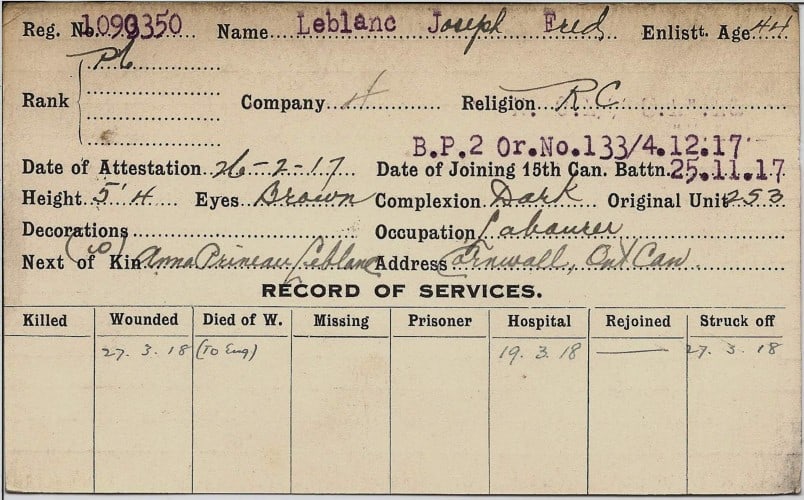 Reg. No. 1090350 Name Leblanc Joseph Fred Enlistt. Age 44
Pte
Rank Company 4 Religion R C
B.P.2 Or.No.133/4.12.17
Date of Attestation 26-2-17 Date of Joining 15th Can. Battn. 25.11.17
Height 5'4 Eyes Brown Complexion Dark Original Unit 253
Decorations Occupation Labourer
Next of Kin Anna Primeau Leblanc Address Cornwall, Ont Can
RECORD OF SERVICES.
Killed Wounded Died of W. Missing Prisoner Hospital Rejoined Struck off
27.3.18 (To Eng) 19.3.18 — 27.3.18